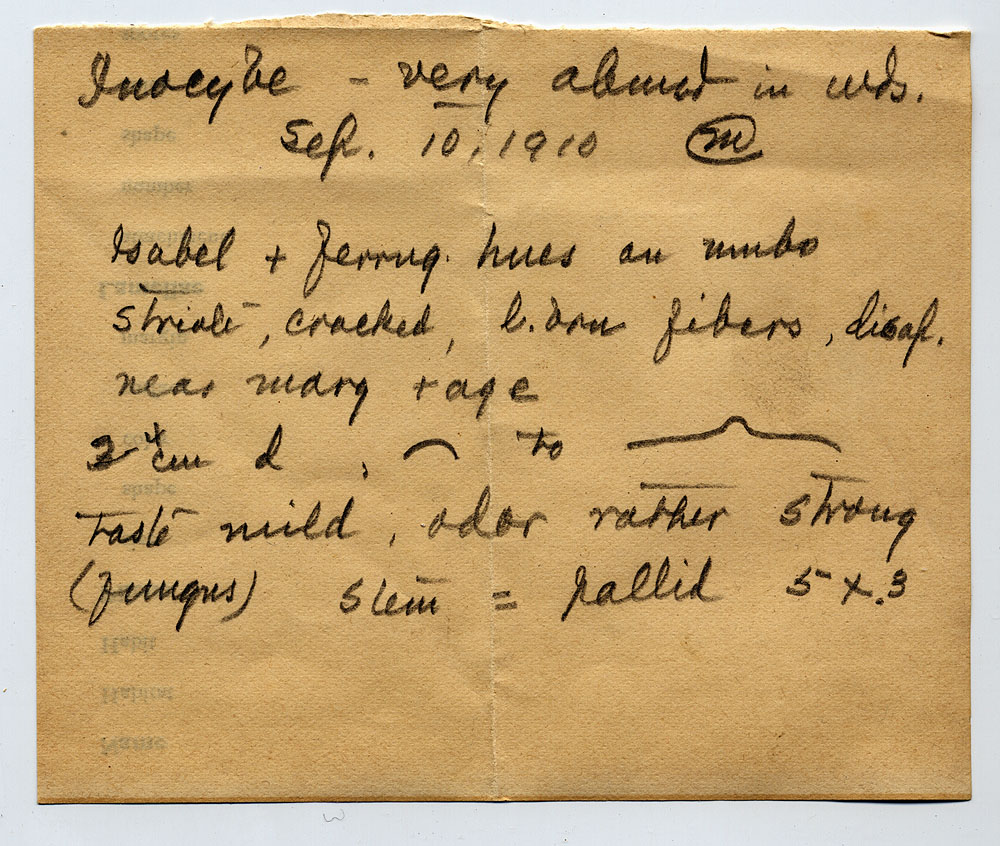 Inocybe - very abund in wds.
Sep. 10, 1910 m
Isabel + ferrug. hues on umbo
striate, cracked, b. brn fibers, disap.
near marg + age
2-4 cm d, to
taste mild, odor rather strong
(fungus) stem = pallid 5 x .3
shape
number
Lamellae
shape
Habit
Habitat
Name